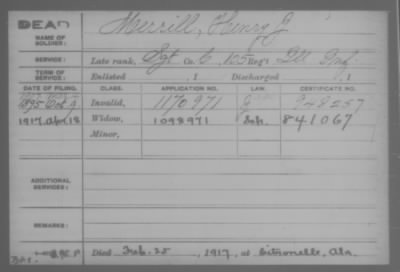 DEAD
NAME OF SOLDIER: Merrill, Henry J
SERVICE: Late rank, Sgt Co. C, 105 Reg't Ill Inf.
TERM OF SERVICE: Enlisted , 1 Discharged , 1
DATE OF FILING. CLASS. APPLICATION NO. LAW. CERTIFICATE NO.
1895 Oct 9 Invalid, 1170971 948257
1917 Apr 18 Widow, 1098971 841067
Minor,
ADDITIONAL SERVICES:
REMARKS:
Died Feb. 25, 1917, at Citronelle, Ala.